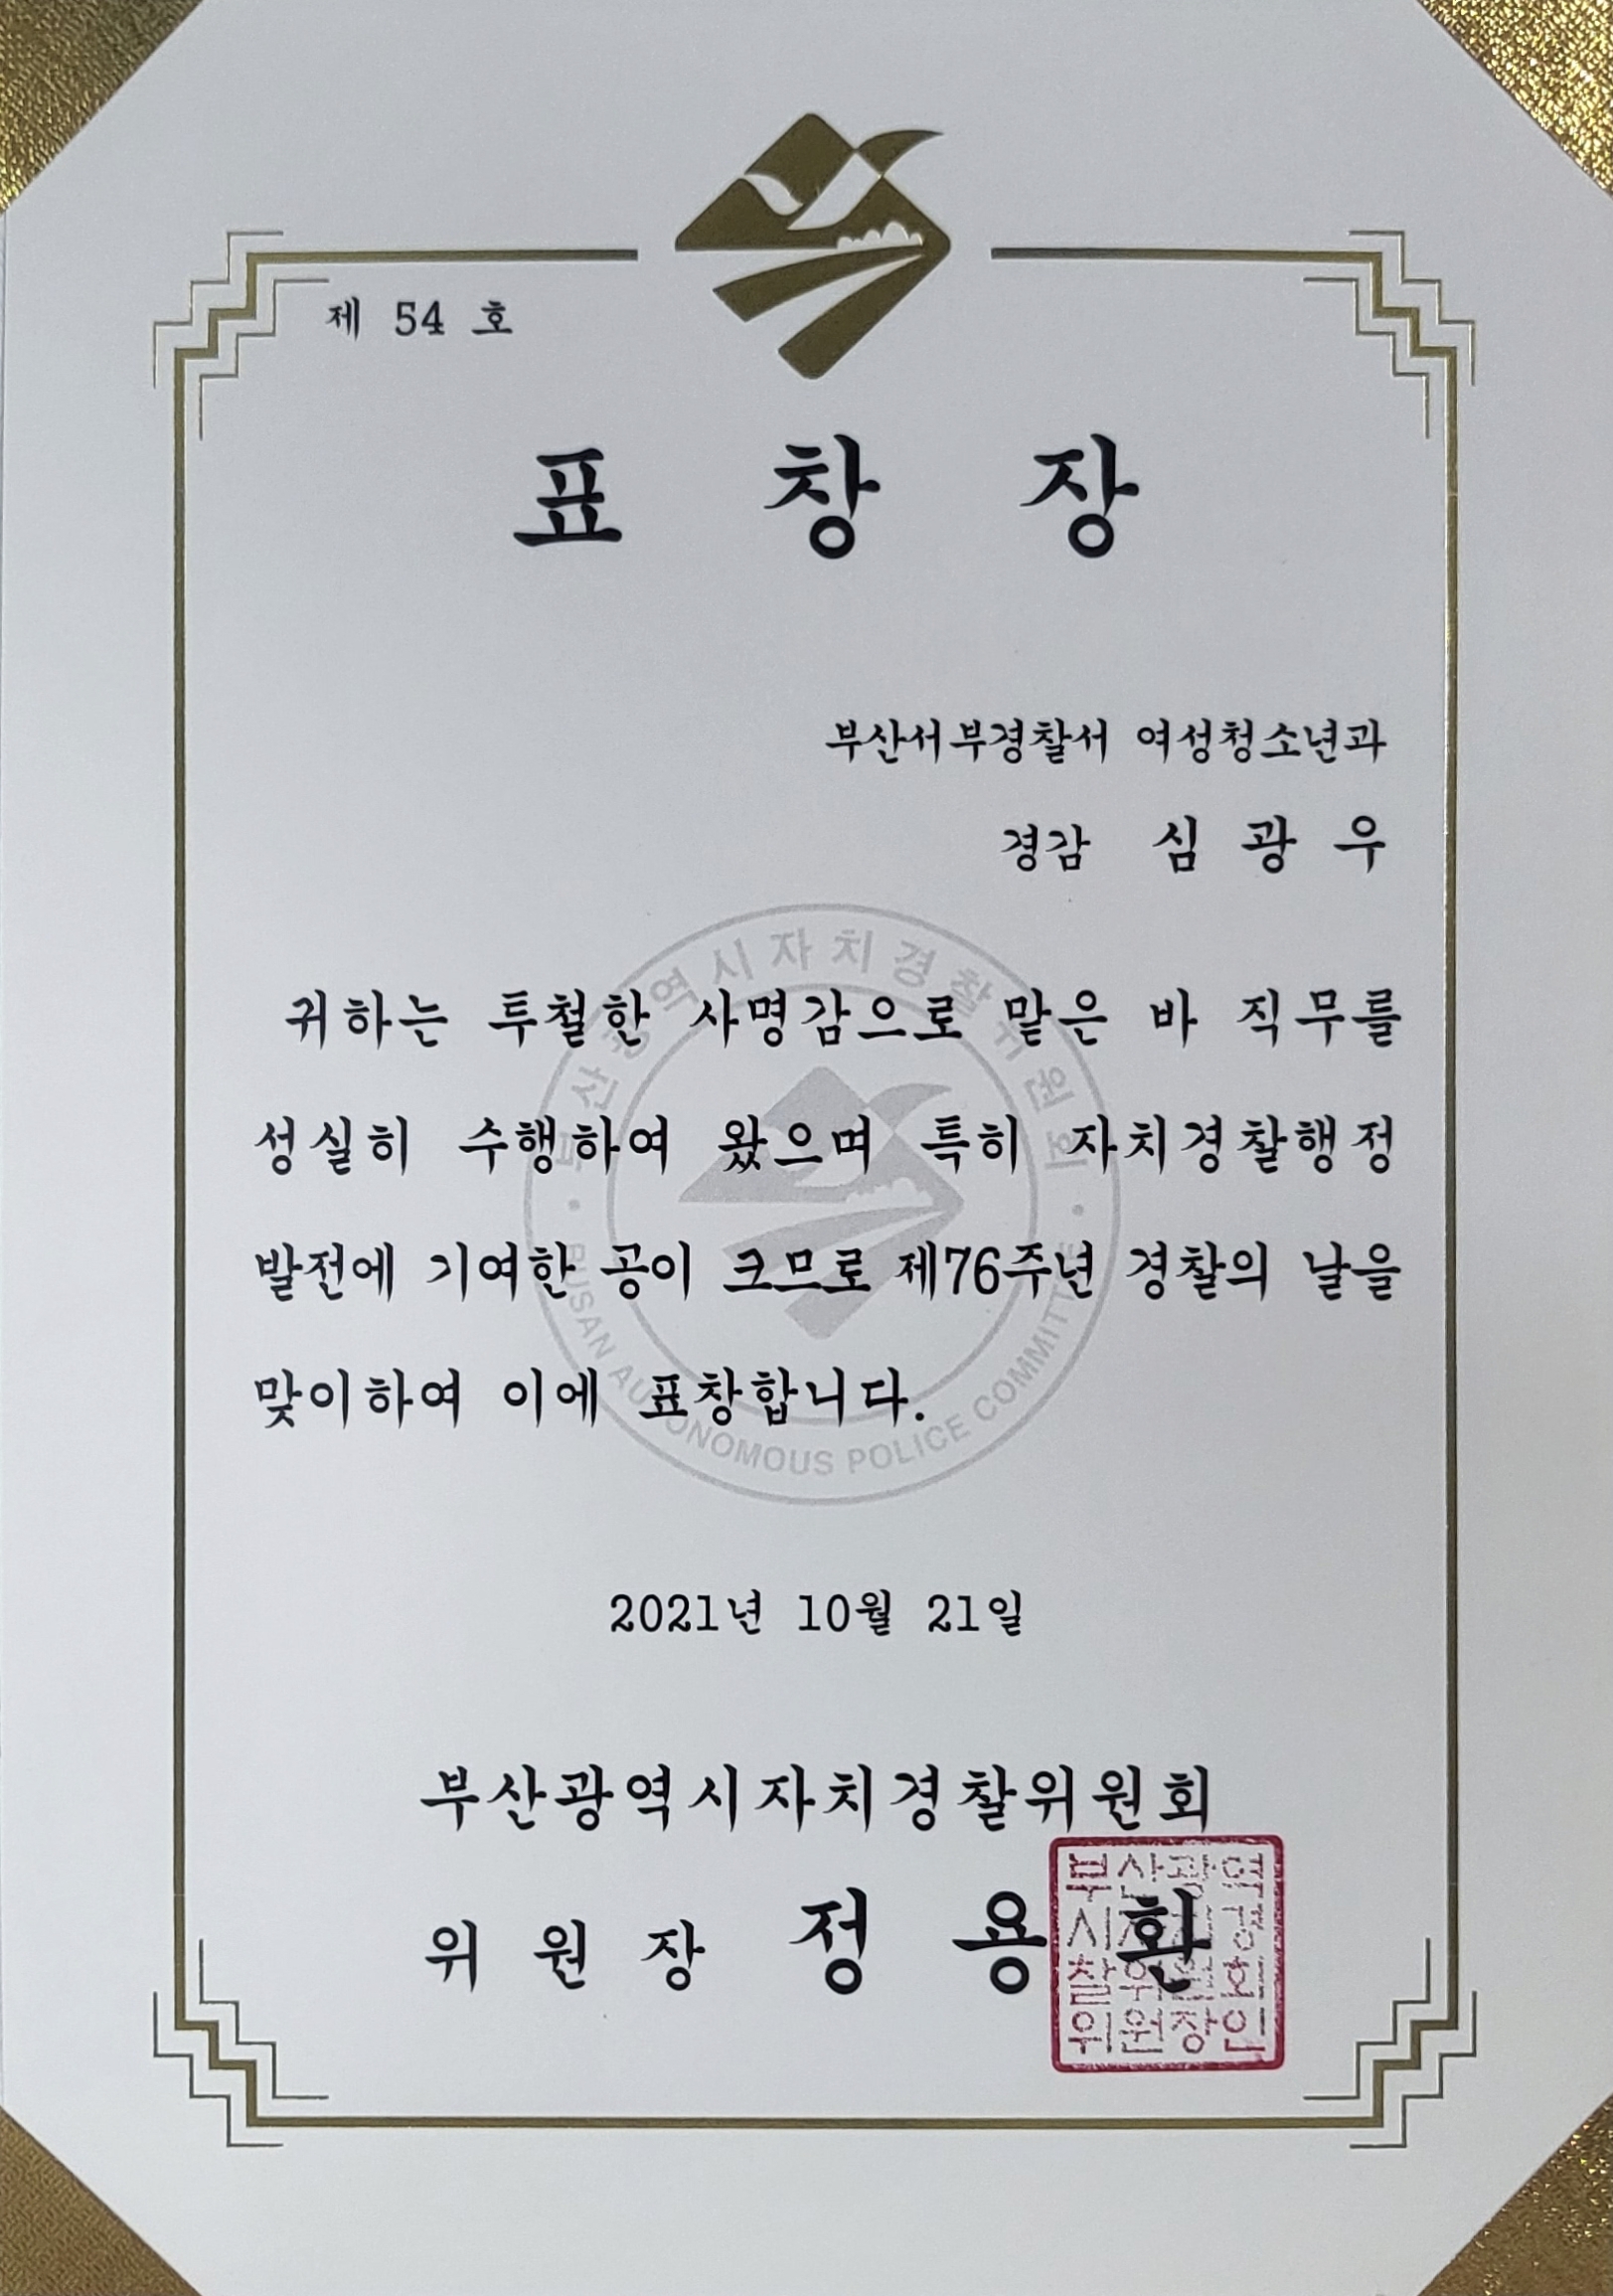 제 54 호
표 창 장
부산서부경찰서 여성청소년과
경감 심 광 우
귀하는 투철한 사명감으로 맡은 바 직무를
성실히 수행하여 왔으며 특히 자치경찰행정
발전에 기여한 공이 크므로 제76주년 경찰의 날을
맞이하여 이에 표창합니다.
부산광역시자치경찰위원회
BUSAN AUTONOMOUS POLICE COMMITTEE
2021년 10월 21일
부산광역시자치경찰위원회
위 원 장 정 용 환
부산광역
시자치경
찰위원회
위원장인